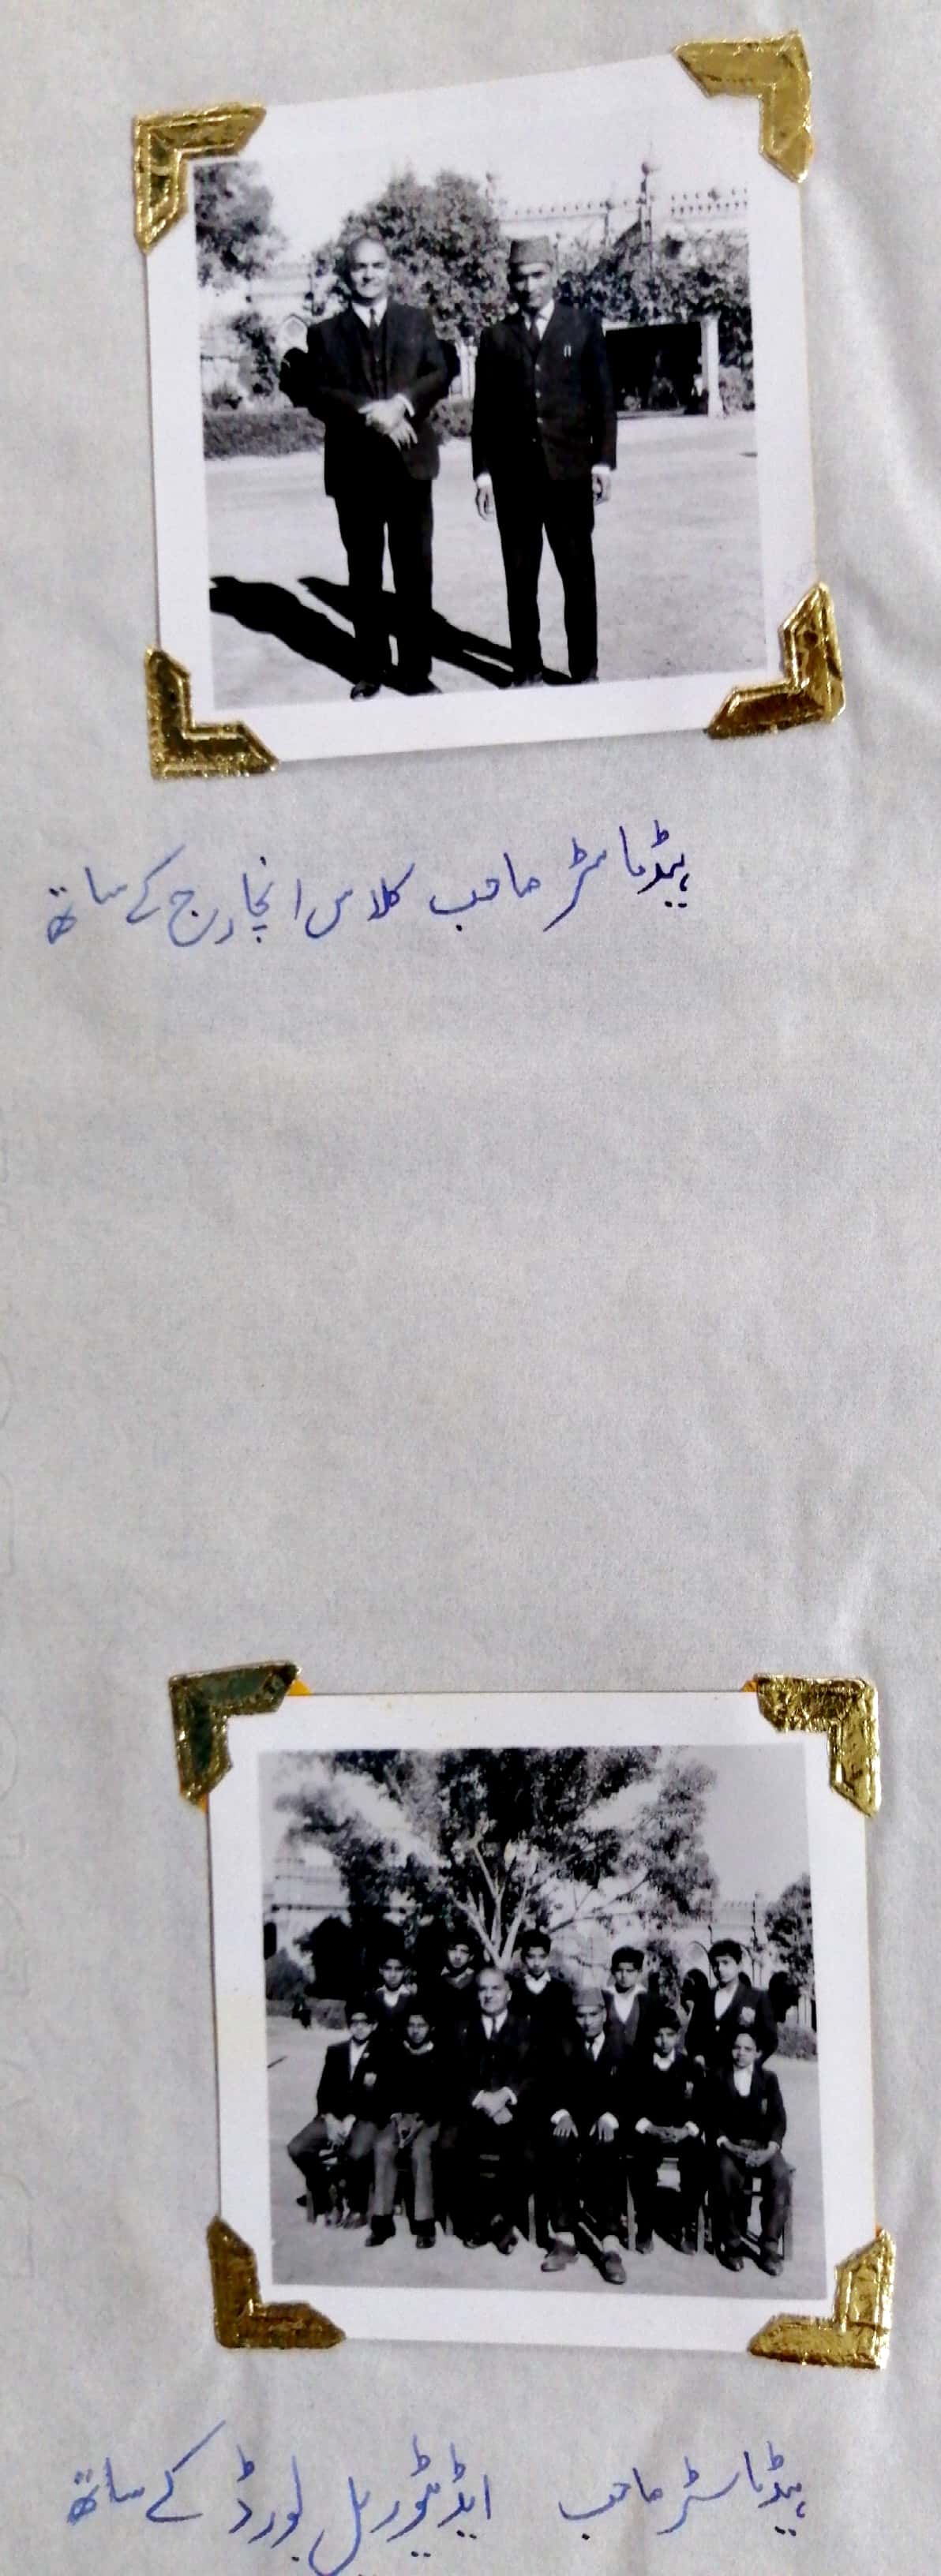 ہیڈماسٹر صاحب کلاس انچارج کے ساتھ
ہیڈماسٹر صاحب ایڈیٹوریل بورڈ کے ساتھ